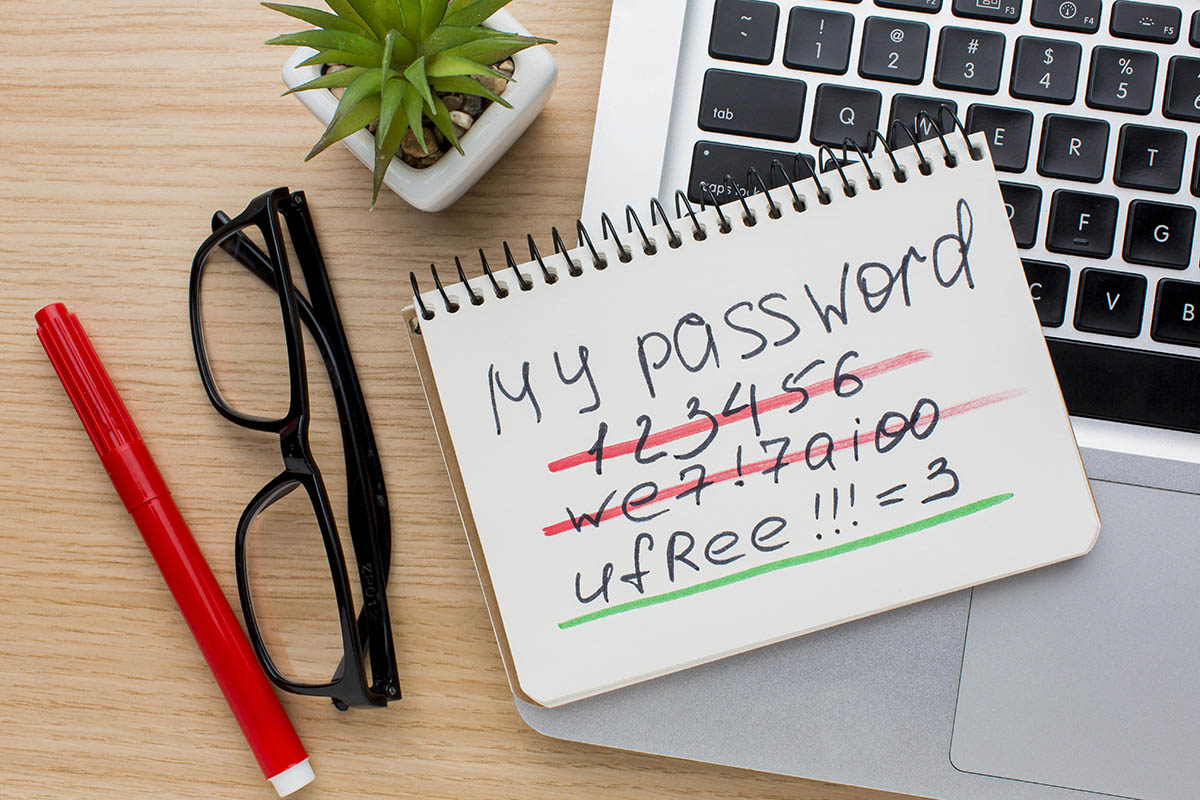 ~
!
1
@
2
#
3
$
4
%
5
F3
F4
F5
tab
Q
W
E
R
T
caps lock
D
F
G
C
V
B
My password
123456
we7!7aioo
ufRee!!!=3